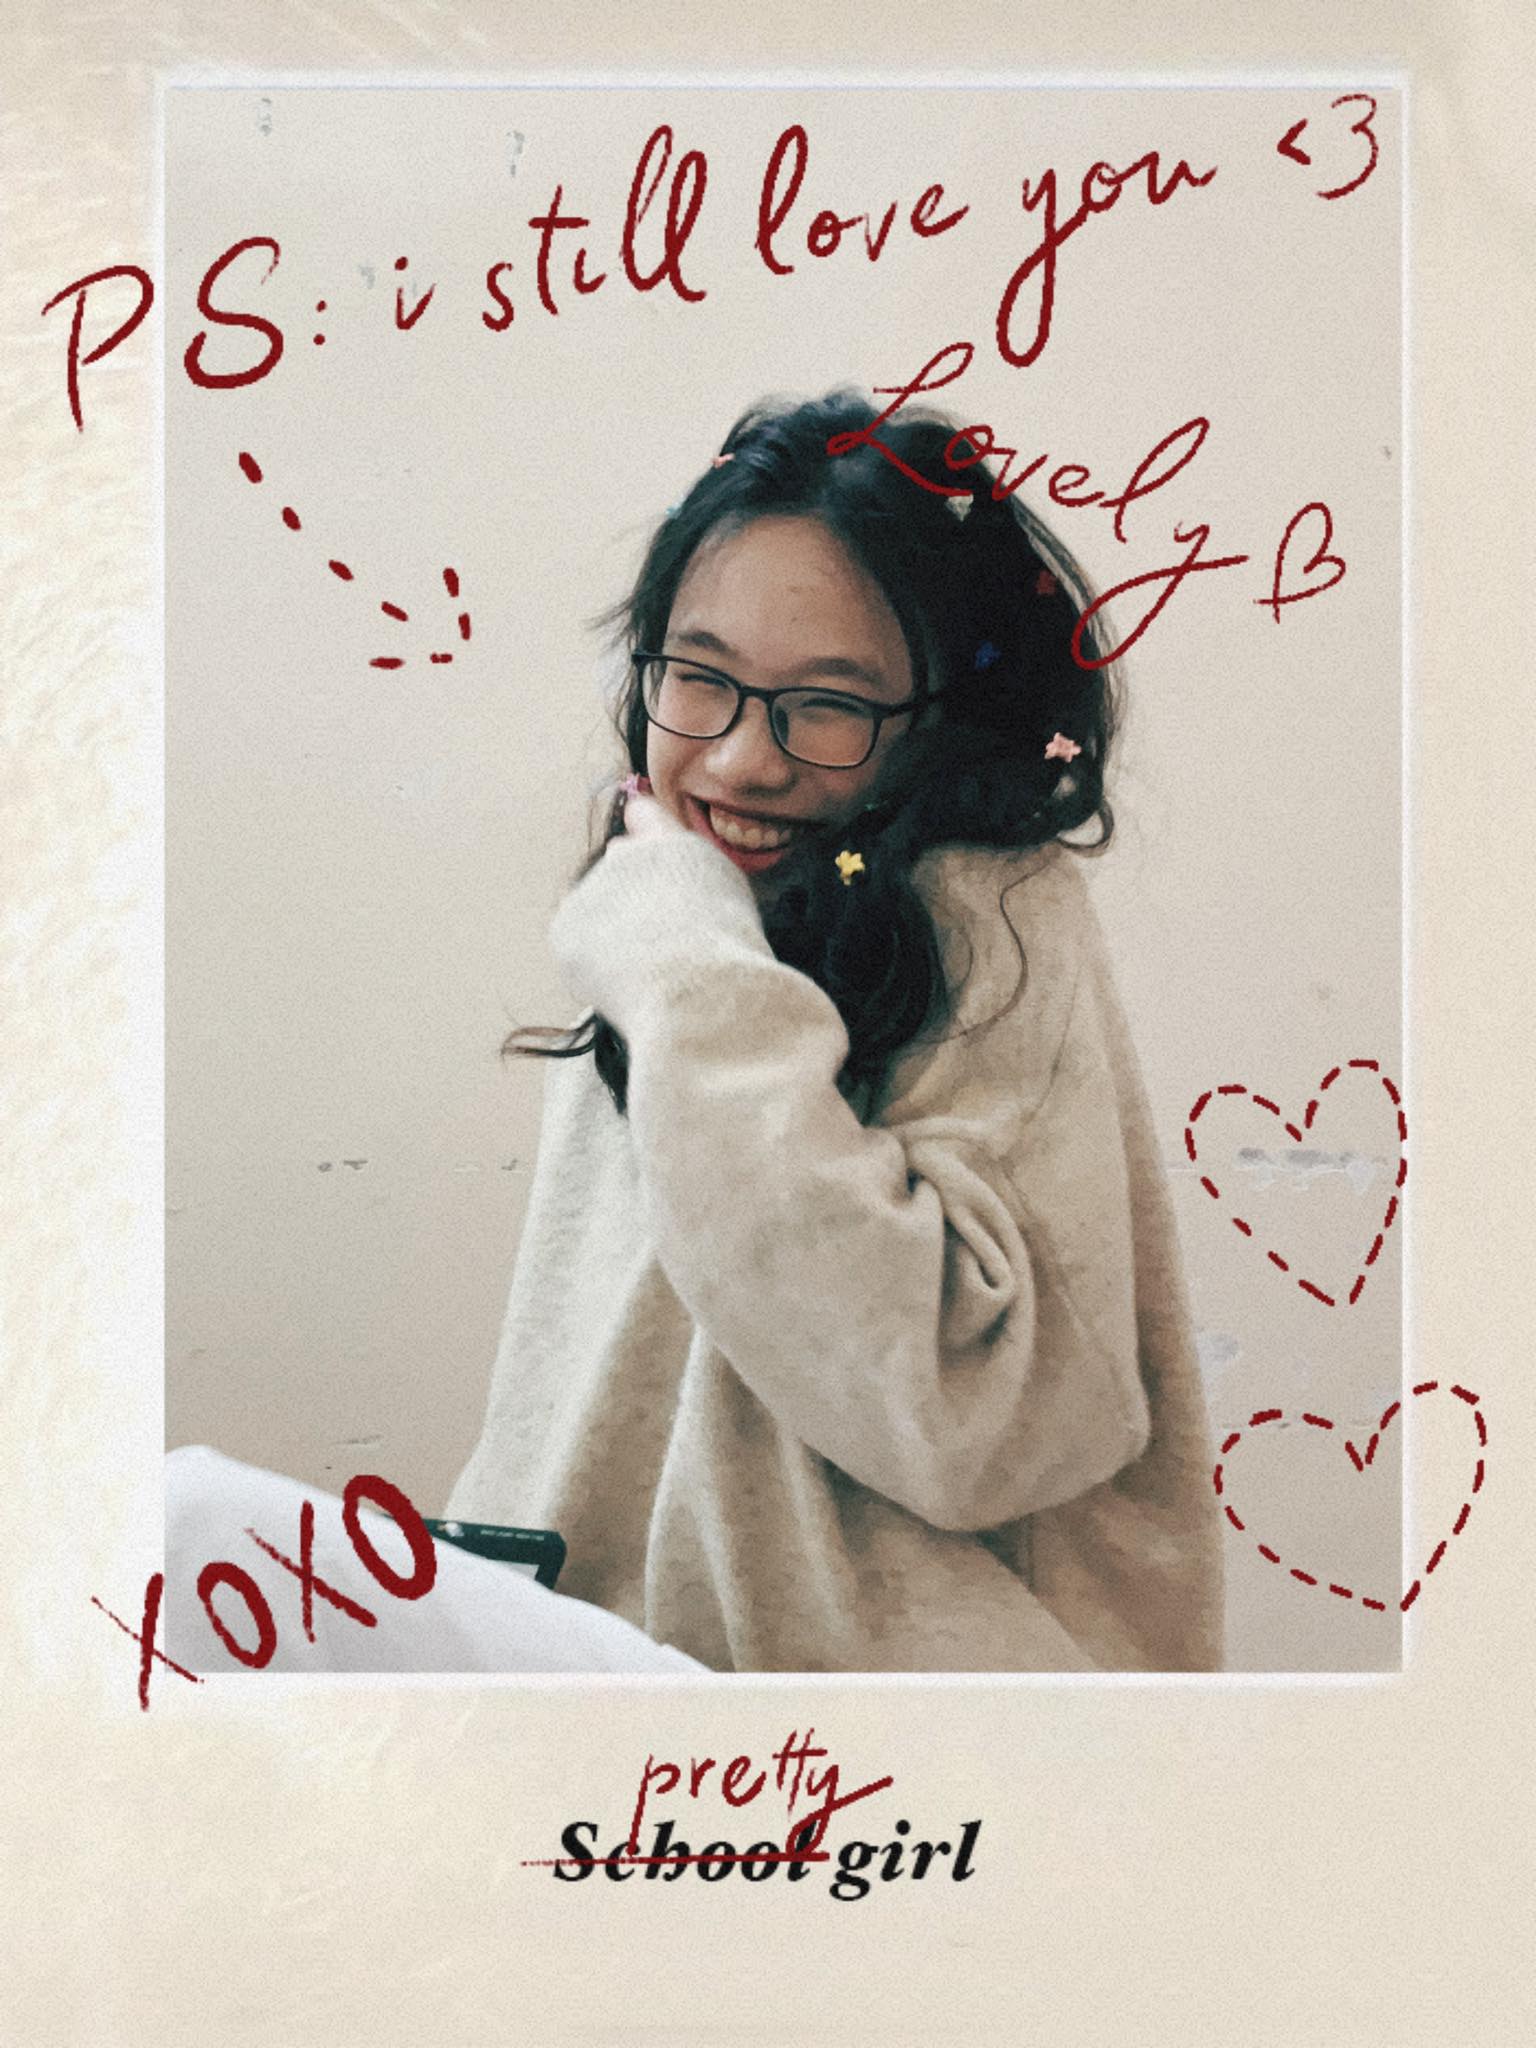 PS: i still love you <3
Lovely
XOXO
pretty
School girl